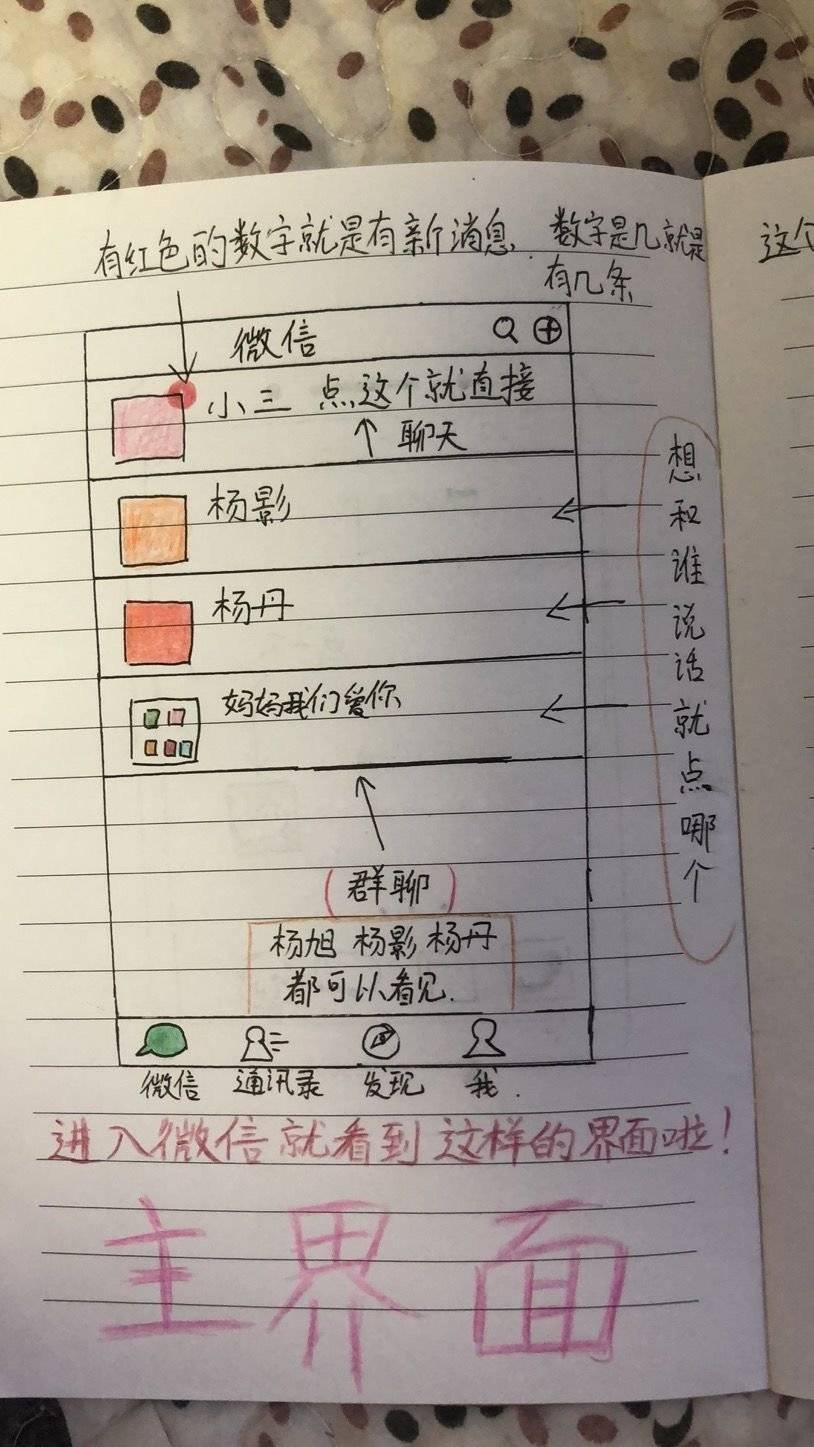 有红色的数字就是有新消息. 数字是几就是
有几条
这个
微信
小三 点这个就直接
聊天
杨影
杨丹
妈妈我们爱你
想和谁说话就点哪个
(群聊)
杨旭 杨影 杨丹
都可以看见.
微信 通讯录 发现 我.
进入微信就看到这样的界面啦!
主界面